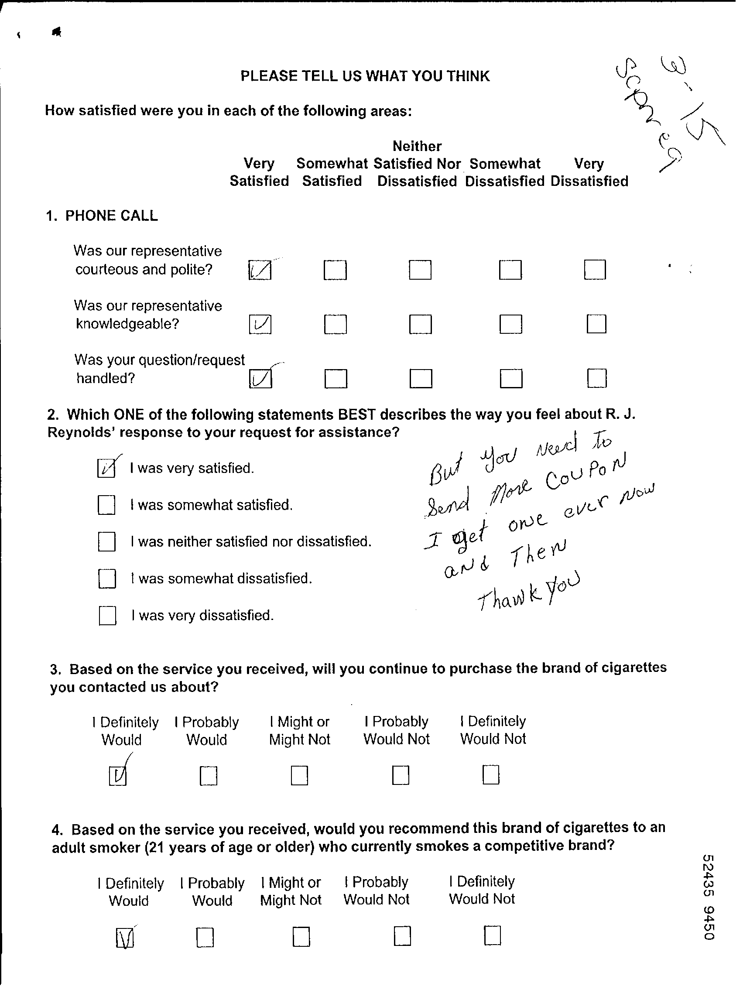 PLEASE TELL US WHAT YOU THINK
3-15
How satisfied were you in each of the following areas:
Neither
Very Somewhat Satisfied Nor Somewhat Very
Satisfied Satisfied Dissatisfied Dissatisfied Dissatisfied
1. PHONE CALL
Was our representative
courteous and polite?
Was our representative
knowledgeable?
Was your question/request
handled?
2. Which ONE of the following statements BEST describes the way you feel about R. J.
Reynolds' response to your request for assistance?
I was very satisfied.
I was somewhat satisfied.
I was neither satisfied nor dissatisfied.
I was somewhat dissatisfied.
I was very dissatisfied.
But you Need to
Send More Coupon
I get one ever Now
and Then
Thank you
3. Based on the service you received, will you continue to purchase the brand of cigarettes
you contacted us about?
I Definitely I Probably I Might or I Probably I Definitely
Would Would Might Not Would Not Would Not
4. Based on the service you received, would you recommend this brand of cigarettes to an
adult smoker (21 years of age or older) who currently smokes a competitive brand?
I Definitely I Probably I Might or I Probably I Definitely
Would Would Might Not Would Not Would Not
52435 9450